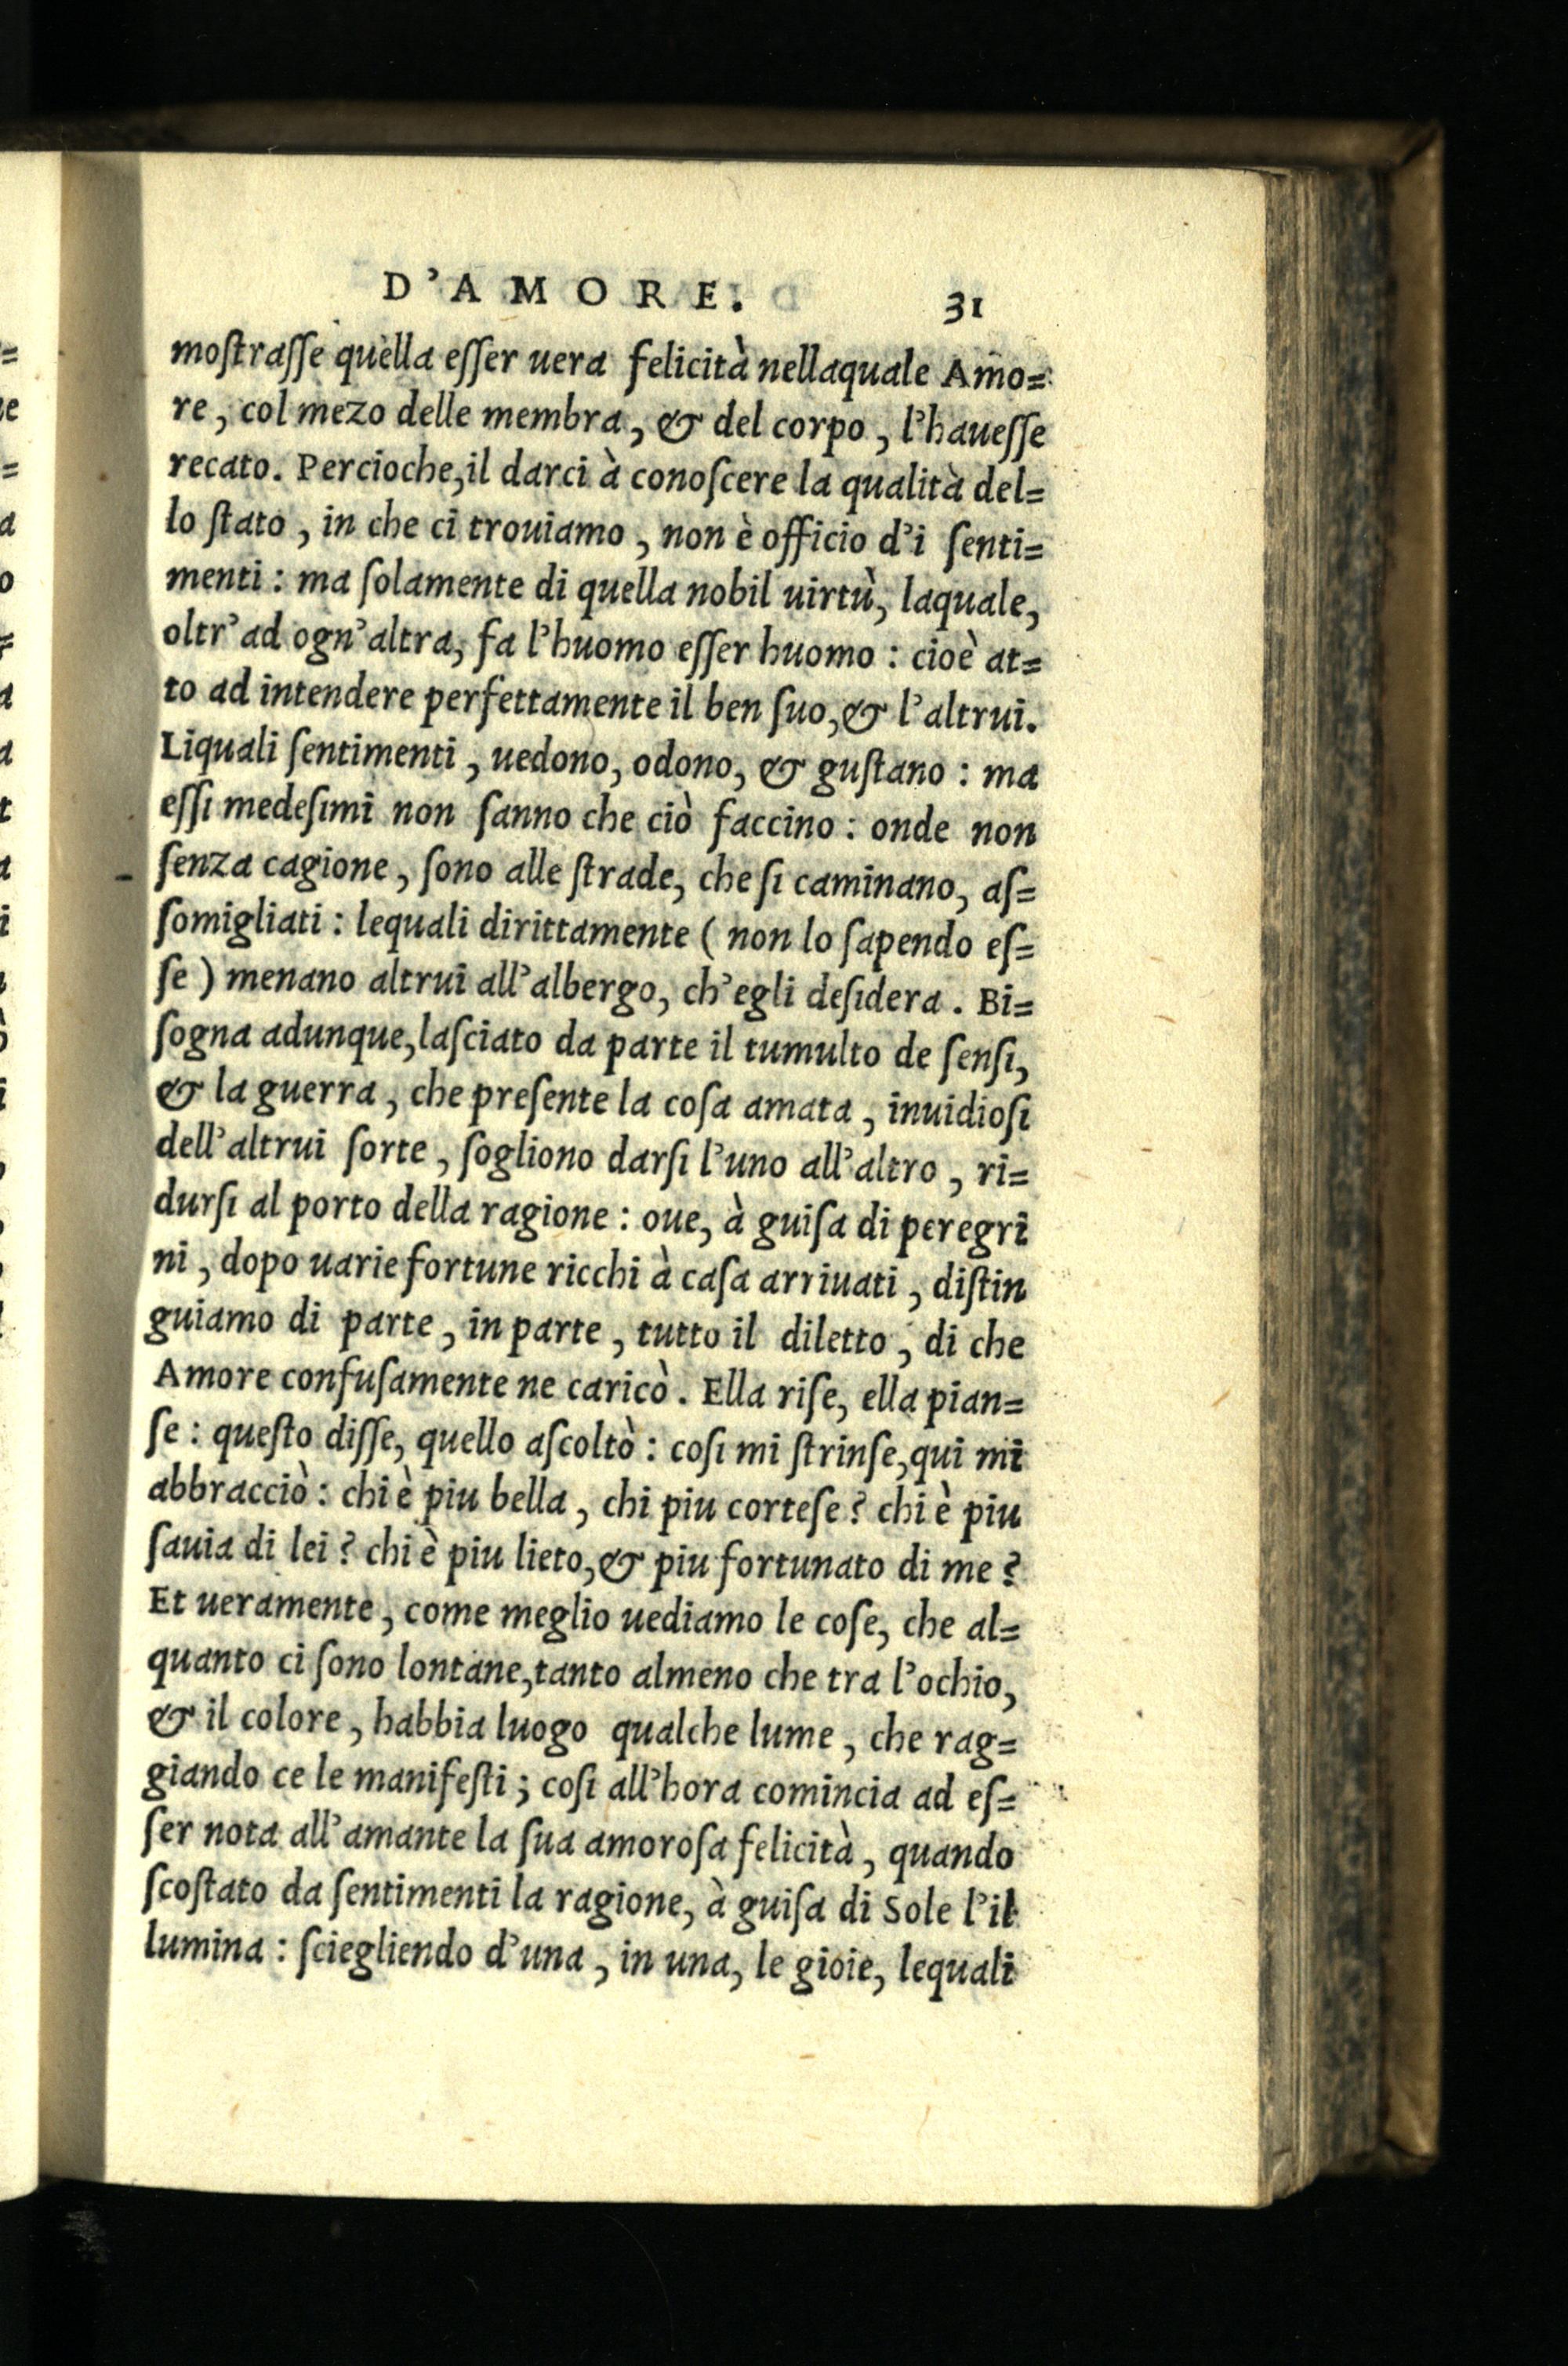 D'AMORE. 31
moſtraſſe quella eſſer uera felicità nellaquale Amo=
re, col mezo delle membra, & del corpo, l'haueſſe
recato. Percioche, il darci à conoſcere la qualità del=
lo ſtato, in che ci trouiamo, non è officio d'i ſenti=
menti: ma ſolamente di quella nobil uirtù, laquale,
oltr'ad ogn'altra, fa l'huomo eſſer huomo: cioè at=
to ad intendere perfettamente il ben ſuo, & l'altrui.
Liquali ſentimenti, uedono, odono, & guſtano: ma
eſſi medeſimi non ſanno che ciò faccino: onde non
ſenza cagione, ſono alle ſtrade, che ſi caminano, aſ=
ſomigliati: lequali dirittamente (non lo ſapendo eſ=
ſe) menano altrui all'albergo, ch'egli deſidera. Bi=
ſogna adunque, laſciato da parte il tumulto de ſenſi,
& la guerra, che preſente la coſa amata, inuidioſi
dell'altrui ſorte, ſogliono darſi l'uno all'altro, ri=
durſi al porto della ragione: oue, à guiſa di peregri
ni, dopo uarie fortune ricchi à caſa arriuati, diſtin
guiamo di parte, in parte, tutto il diletto, di che
Amore confuſamente ne caricò. Ella riſe, ella pian=
ſe: queſto diſſe, quello aſcoltò: coſi mi ſtrinſe, qui mi
abbracciò: chi è piu bella, chi piu corteſe? chi è piu
ſauia di lei? chi è piu lieto, & piu fortunato di me?
Et ueramente, come meglio uediamo le coſe, che al=
quanto ci ſono lontane, tanto almeno che tra l'ochio,
& il colore, habbia luogo qualche lume, che rag=
giando ce le manifeſti; coſi all'hora comincia ad eſ=
ſer nota all'amante la ſua amoroſa felicità, quando
ſcoſtato da ſentimenti la ragione, à guiſa di Sole l'il
lumina: ſciegliendo d'una, in una, le gioie, lequali